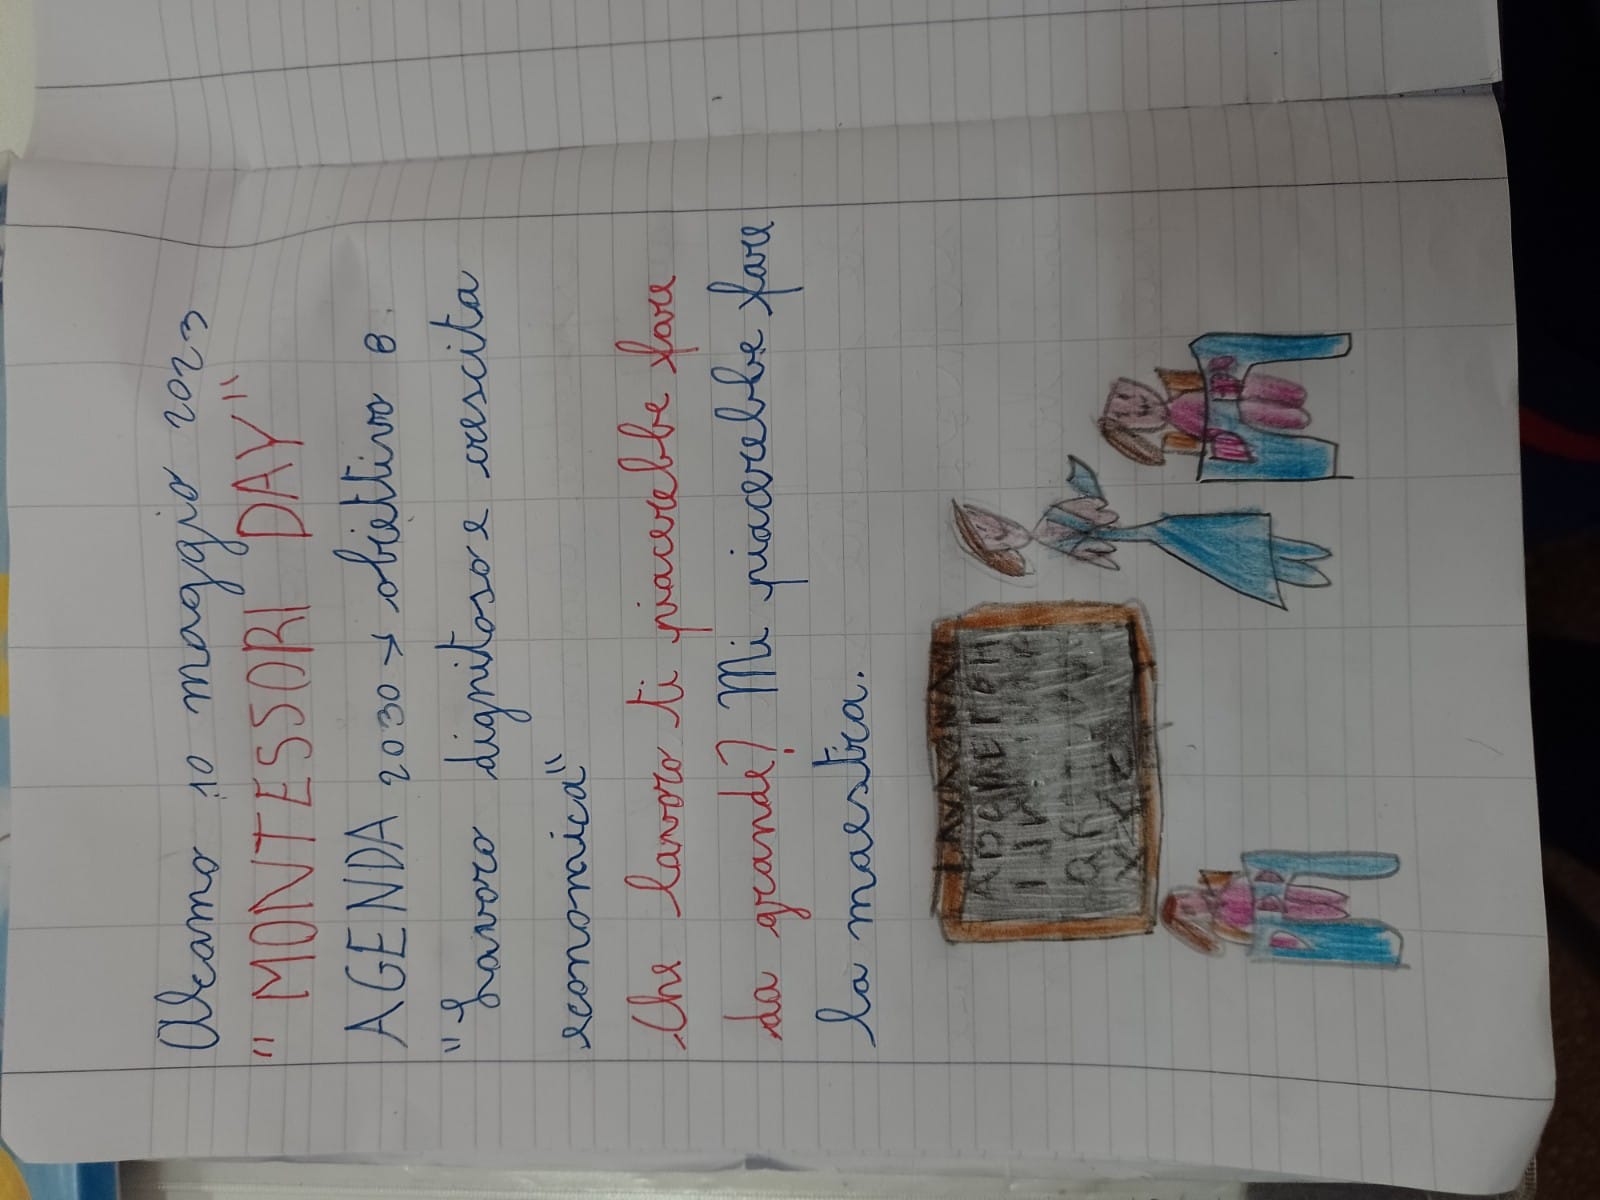 Alcamo 10 maggio 2023
"MONTESSORI DAY"
AGENDA 2030 → obiettivo 8
"Lavoro dignitoso e crescita
economica"
Che lavoro ti piacerebbe fare
da grande? Mi piacerebbe fare
la maestra.